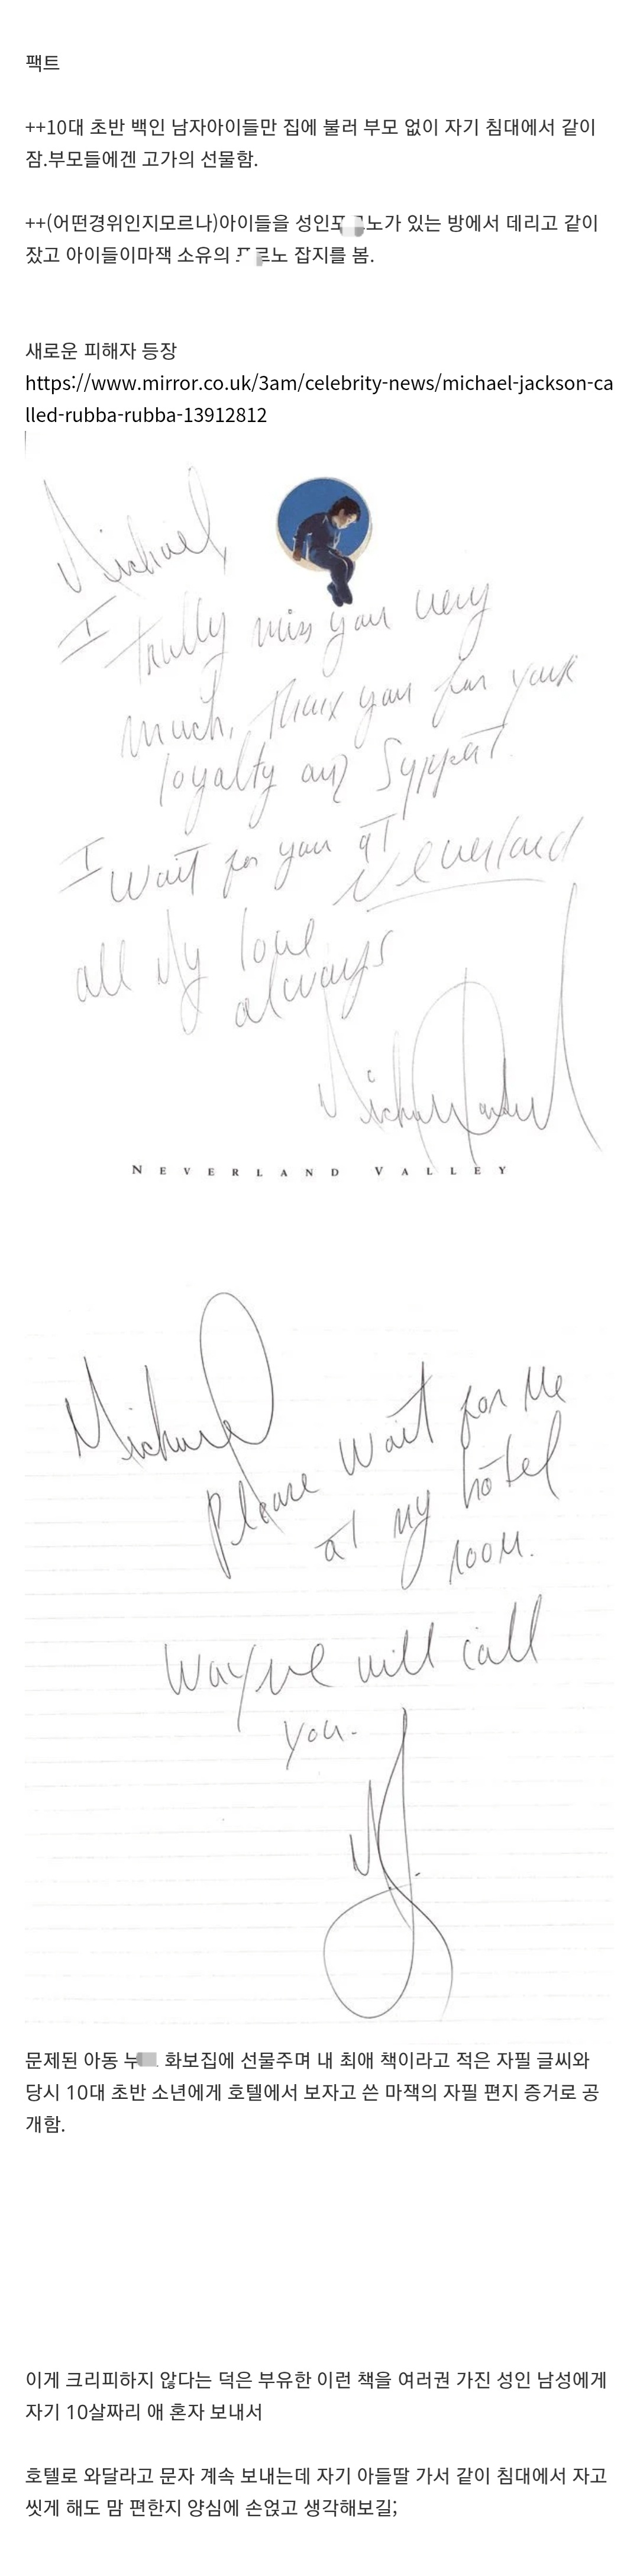 팩트
++10대 초반 백인 남자아이들만 집에 불러 부모 없이 자기 침대에서 같이
잠.부모들에겐 고가의 선물함.
++(어떤경위인지모르나)아이들을 성인포 노가 있는 방에서 데리고 같이
잤고 아이들이마잭 소유의 르노 잡지를 봄.
새로운 피해자 등장
https://www.mirror.co.uk/3am/celebrity-news/michael-jackson-ca
lled-rubba-rubba-13912812
Michael,
I trully miss you very
much, thank you for your
loyalty and Support.
I wait for you at
Neverland
all My love
always
Michael Jackson
NEVERLAND VALLEY
Michael
please wait for Me
at my hotel
room.
Wayne will call
you.
MJ.
문제된 아동 누 화보집에 선물주며 내 최애 책이라고 적은 자필 글씨와
당시 10대 초반 소년에게 호텔에서 보자고 쓴 마잭의 자필 편지 증거로 공
개함.
이게 크리피하지 않다는 덕은 부유한 이런 책을 여러권 가진 성인 남성에게
자기 10살짜리 애 혼자 보내서
호텔로 와달라고 문자 계속 보내는데 자기 아들딸 가서 같이 침대에서 자고
씻게 해도 맘 편한지 양심에 손얹고 생각해보길;